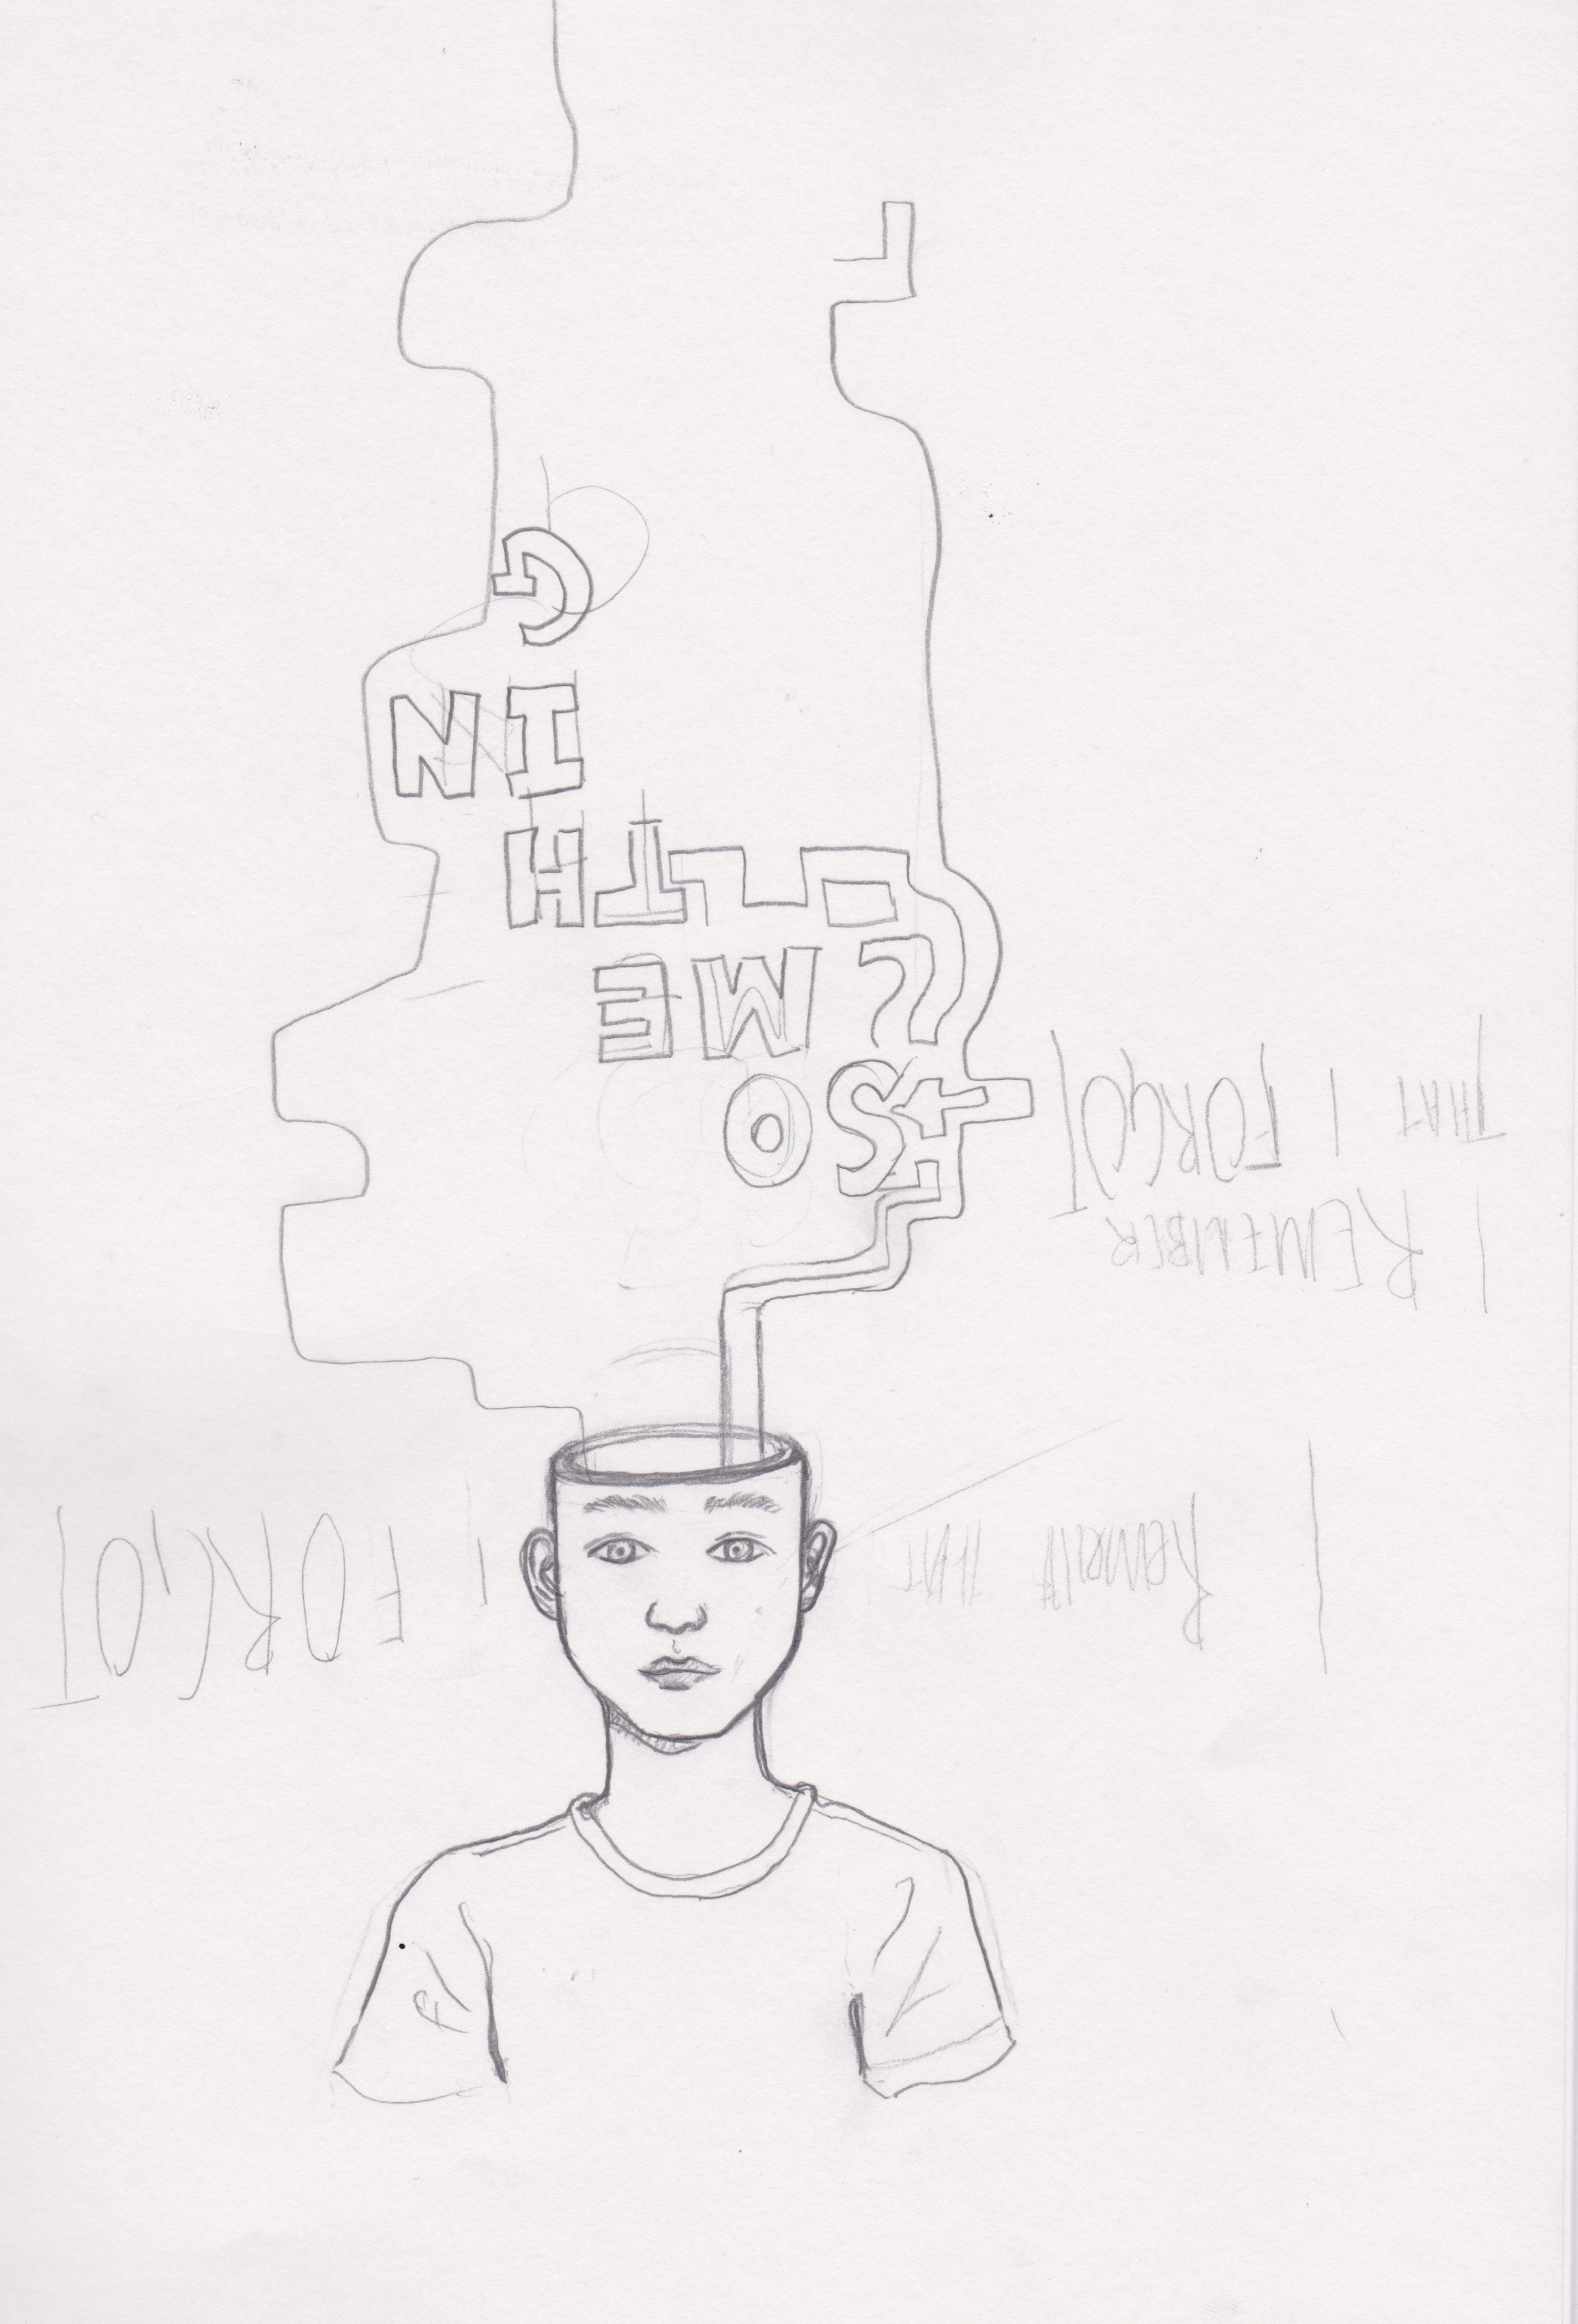 I THAT I FORGOT
I REMEMBER
THAT I FORGOT
SO
ME
TH
IN
G